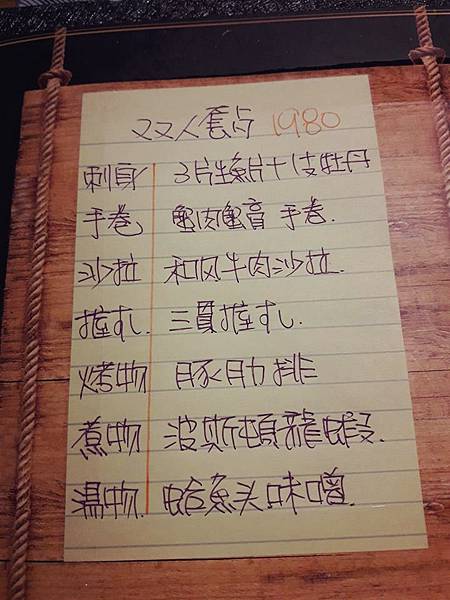 双人套点 1980
刺身 3片生魚片+1支牡丹
手卷 蟹肉蟹膏 手卷.
沙拉 和风牛肉沙拉.
握すし. 三貫握すし.
烤物 豚肋排
煮物 波斯頓龍蝦.
湯物. 蛤魚头味噌.